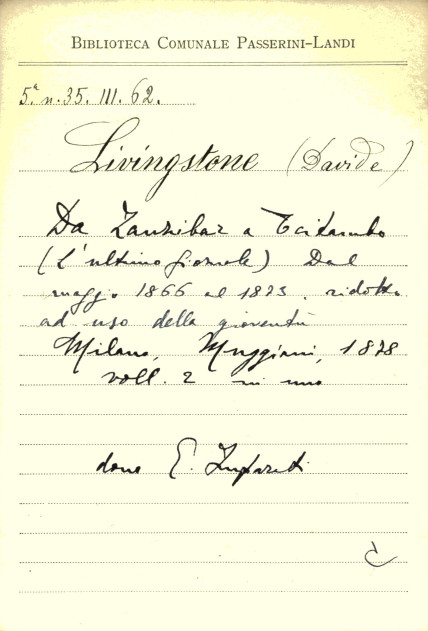 BIBLIOTECA COMUNALE PASSERINI-LANDI
5.ª n. 35. III. 62.
Livingstone (Davide)
Da Zanzibar a Tcitambo
(L'ultimo giornale) Dal
maggio 1866 al 1873. ridotto
ad uso della gioventù
Milano, Muggiani, 1878
voll. 2 in uno
dono E.
C